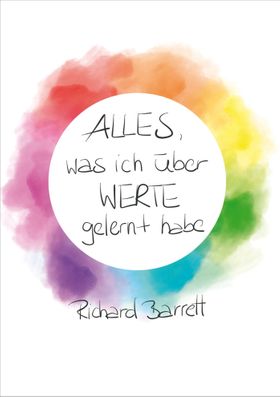 ALLES,
was ich über
WERTE
gelernt habe
Richard Barrett